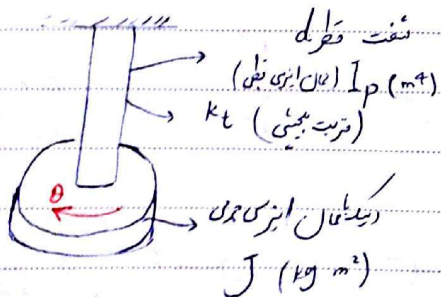 شفت قطر d
I_p (m⁴) (ممان اینرسی قطبی)
k_t (ضریب پیچشی)
θ
دیسک با ممان اینرسی جرمی
J (kg m²)